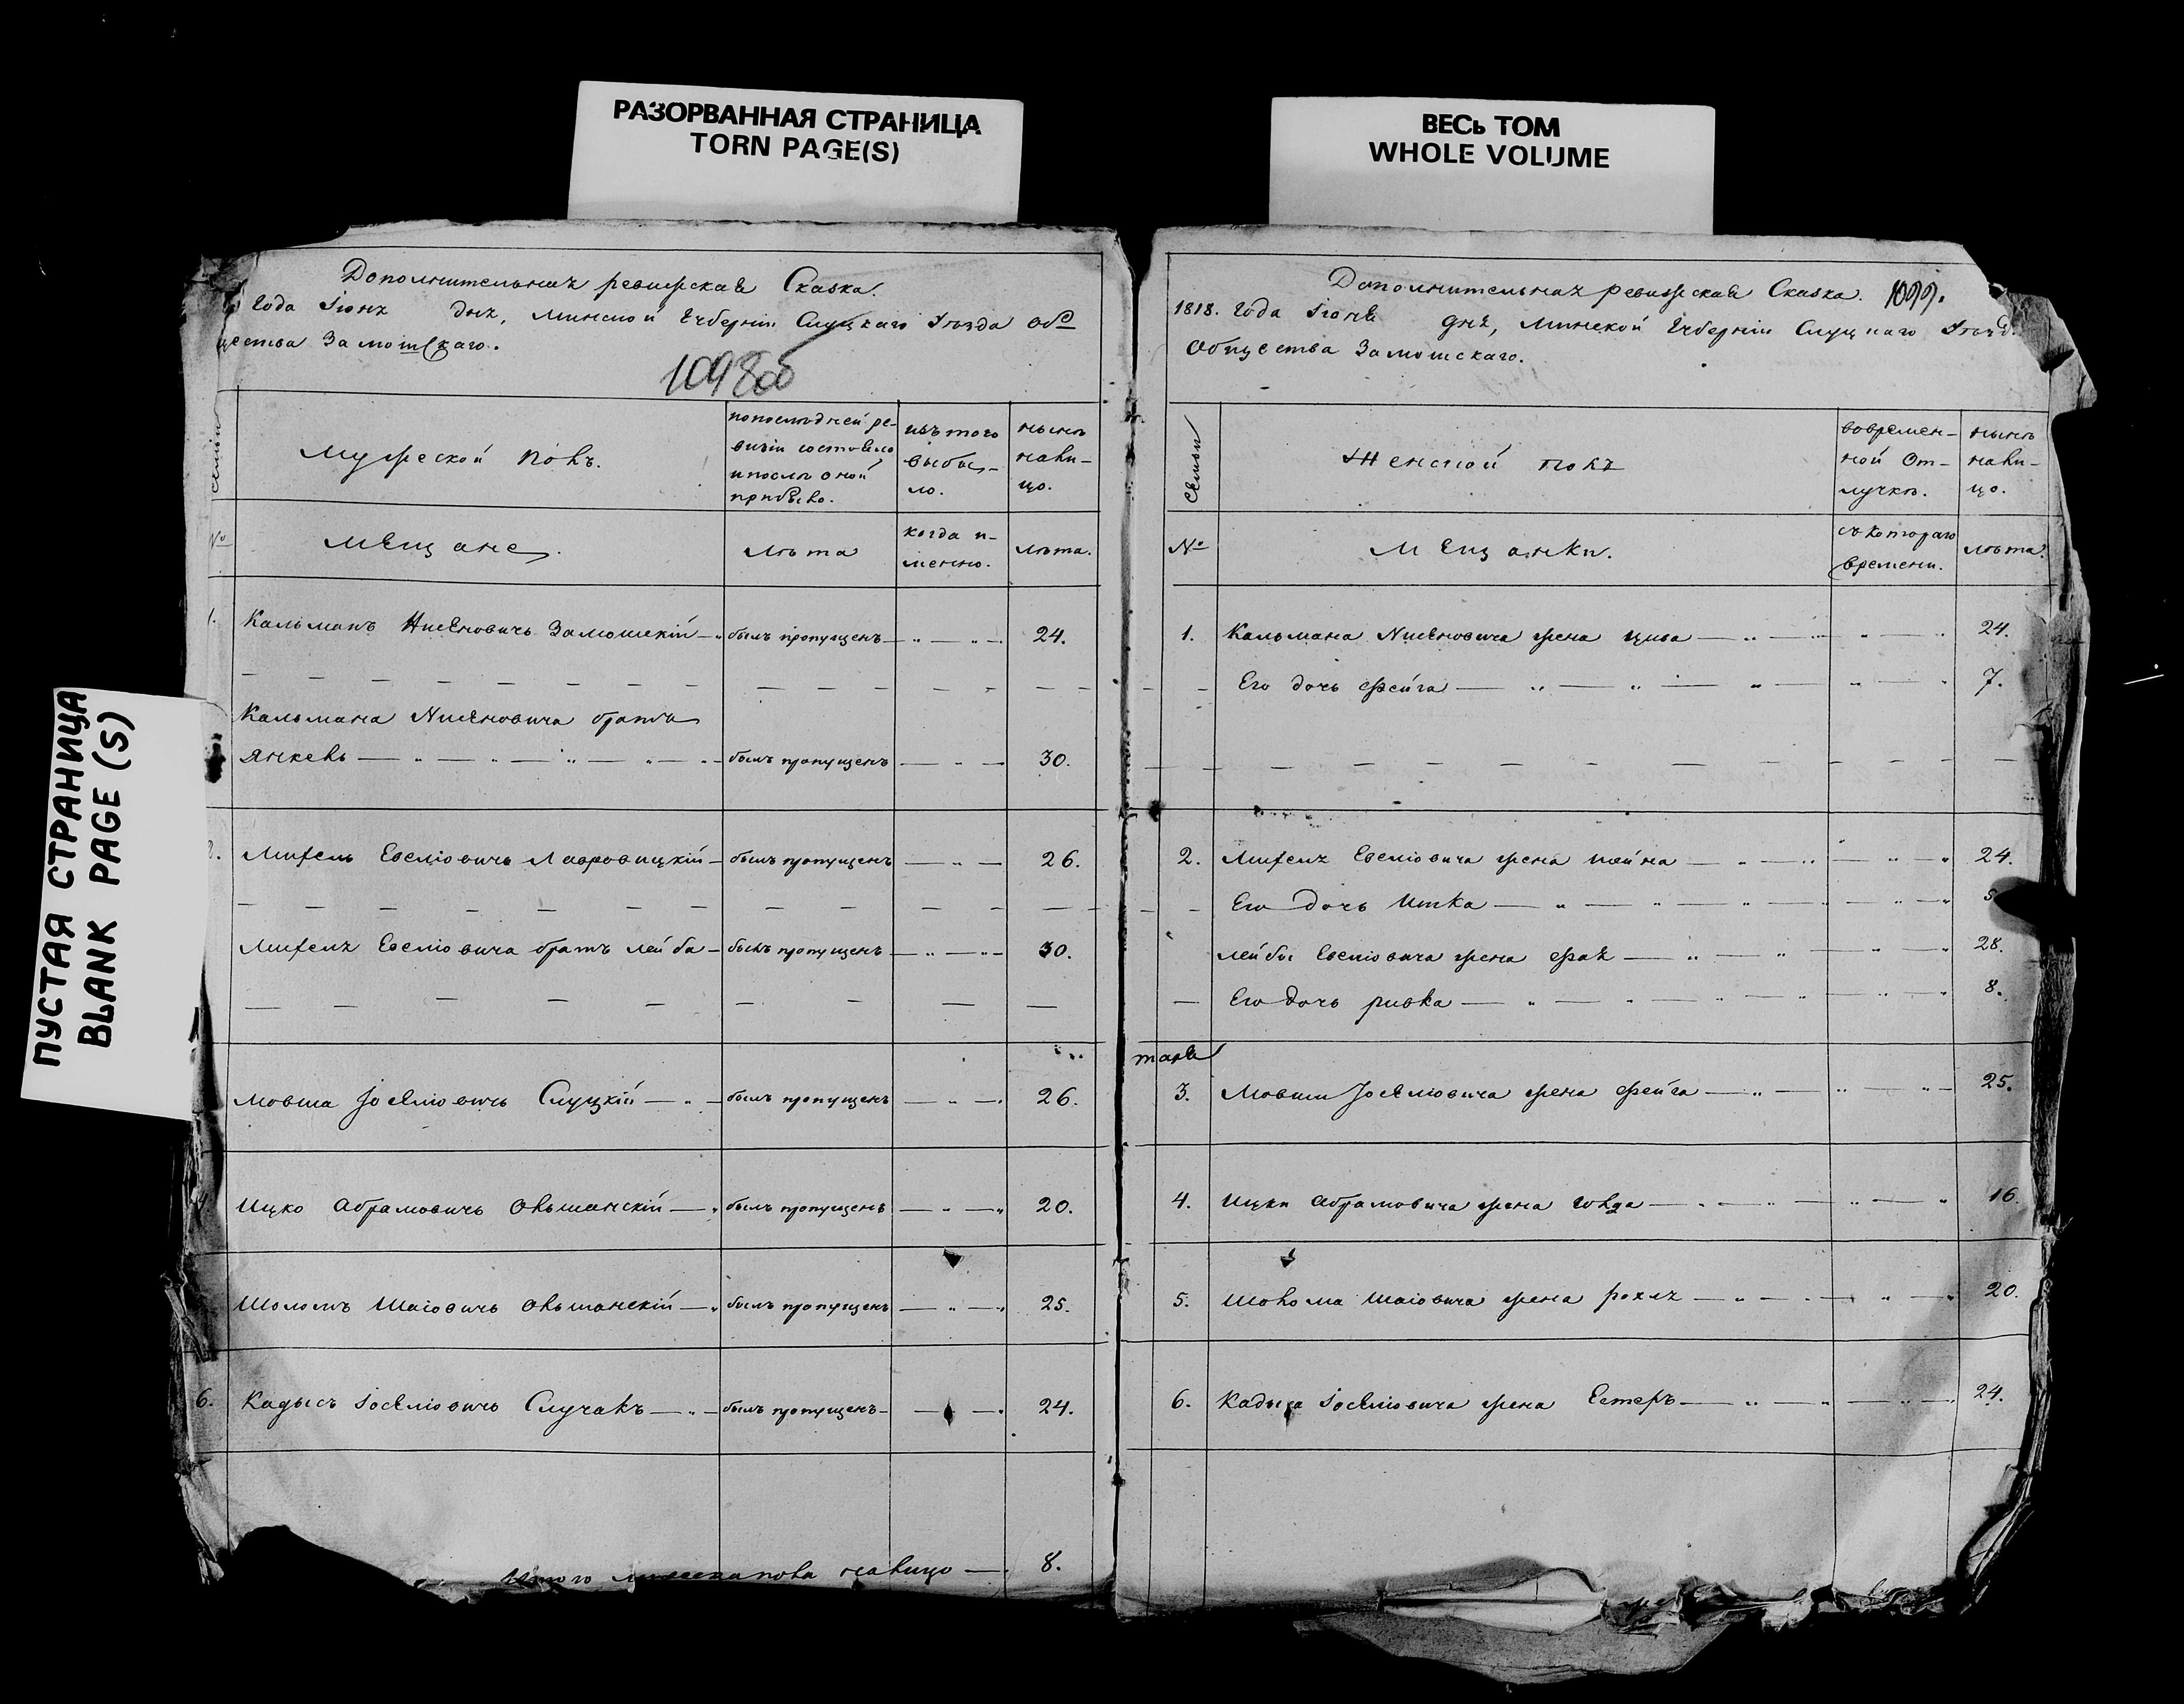 РАЗОРВАННАЯ СТРАНИЦА
TORN PAGE(S)
ВЕСЬ ТОМ
WHOLE VOLUME
ПУСТАЯ СТРАНИЦА
BLANK PAGE (S)
Дополнительная ревизская Сказка.
года Iюня дня, Минской Губернiи Слуцкаго Уѣзда Об
щества Замошскаго.
1098об
Семьи
Мужеской полъ.
попослѣдней ре-
визiи состояло
и послѣ оной
прибыло.
изъ того
выбы-
ло.
нынѣ
нали-
цо.
№
Мещане.
лѣта
когда и-
менно.
лѣта.
1. Кальманъ Нисѣновичъ Замошскiй былъ пропущенъ 24.
Кальмана Нисѣновича братъ
Янкель былъ пропущенъ 30.
2. Михель Евелiовичъ Лавровицкiй былъ пропущенъ 26.
Михеля Евелiовича братъ лейба былъ пропущенъ 30.
Мовша Iоселiовичъ Слуцкiй былъ пропущенъ 26.
Ицко Абрамовичъ Ольшанскiй былъ пропущенъ 20.
Шоломъ Шаiовичъ Ольшанскiй былъ пропущенъ 25.
6. Кадысъ Iоселiовичъ Случакъ былъ пропущенъ 24.
Итого налицо 8.
Дополнительная ревизская Сказка. 1099.
1818. года Iюня дня, Минской Губернiи Слуцкаго Уѣзд.
Общества Замошскаго.
Семьи
Женской полъ
вовремен-
ной От-
лучкѣ.
нынѣ
нали-
цо.
№
Мещанки.
съкотораго
времени.
лѣта.
1. Кальмана Нисѣновича жена цива 24.
Его дочь фейга 7.
2. Михеля Евелiовича жена шейна 24.
Его дочь Итка 5
лейбы Евелiовича жена фая 28.
Его дочь ривка 8.
3. Мовши Iоселiовича жена фейга 25.
4. Ицки Абрамовича жена голда 16.
5. Шолома Шаiовича жена рохля 20.
6. Кадыса Iоселiовича жена Естеръ 24.